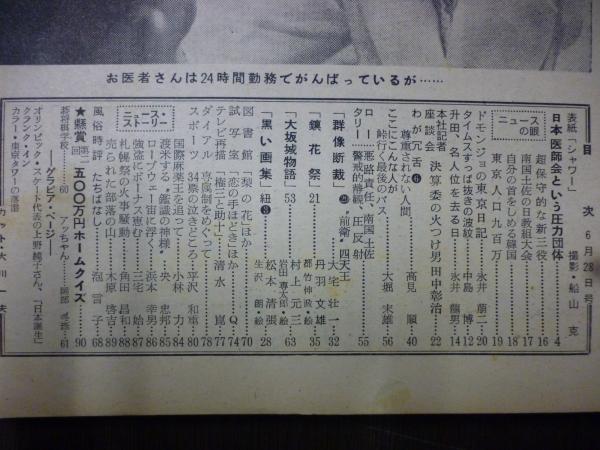 お医者さんは24時間勤務でがんばっているが……
次 6月28日号
表紙「シャワー」 撮影・船山克
日本医師会という圧力団体 4
ニュースの眼
超保守的な新三役 16
南国土佐の日教組大会 17
自分の首をしめる韓国 18
東京人口九百万 19
ドモンジョの東京日記 20
タイムズすっぱ抜きの波紋 中島博 12
升田、名人位を去る日 14
本社記者座談会 決算委の火つけ男田中彰治 22
わが冗舌⑥ 尊重されない人間 高見順 40
ここにこんな人が 峠行く最後のバス 大堀末雄 56
ロータリー 悪路責任、南国土佐
警戒的静観、圧反射 55
「群像断裁」㉕ “前衛”四天王 大宅壮一 32
「鏡花祭」21 丹羽文雄 都竹伸政・絵 35
「大坂城物語」53 村上元三 岩田専太郎・絵 63
「黒い画集」紐③ 松本清張 生沢朗・絵 28
図書館「梨の花」ほか 70
試写室「恋の手ほどき」ほか Q 74
テレビ再描「権三と助十」 清水崑 77
ダイアル 専属制をめぐって 78
スポーツ 34票の泣きどころ 平沢和重 80
ニュース・ストーリー
国際麻薬王を追って 小林力 84
渡米する“鑑識の神様” 央忠邦 85
ロープウェー宙に浮く 浜本幸男 86
強盗にボーナス恵む 三宅始 87
札幌祭の火事騒動 角田昌和 88
売られた部落の山 木原啓吉 89
風俗時評 たちばなし 泡言子 68
★懸賞第二回 五〇〇万円ホームクイズ 90
碁将棋学校 60 アッちゃん 岡部冬彦 61
――グラビア・ページ――
オリンピック・スケート代表の上野純子さん、「日本誕生」
クランク・イン
カラー・東京タワーの落雷
カット・大川一夫